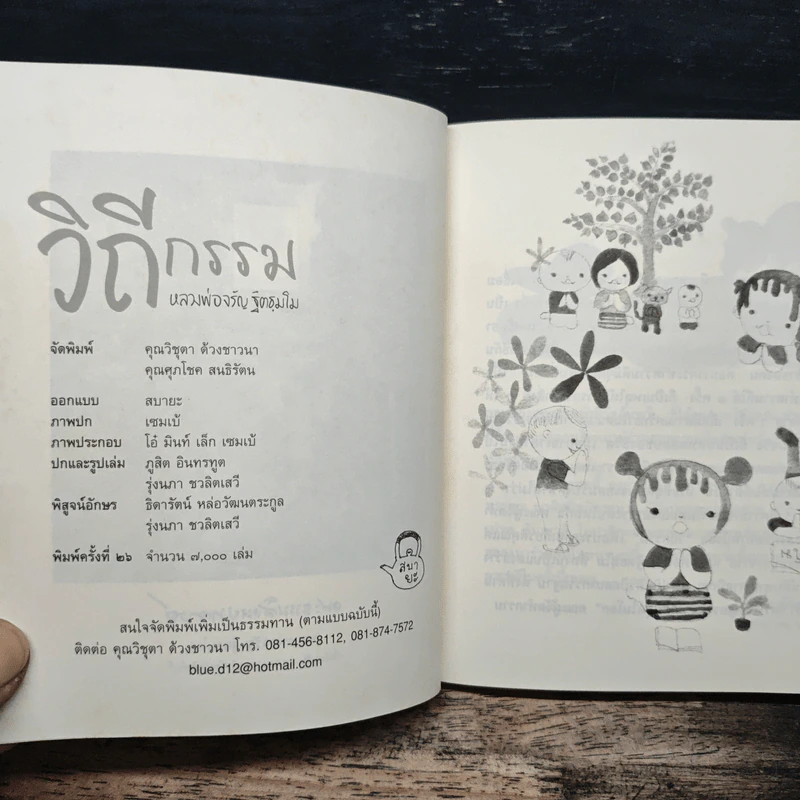 วิถีกรรม
หลวงพ่อจรัญ ฐิตธมฺโม
จัดพิมพ์ คุณวิชุตา ด้วงชาวนา
คุณศุภโชค สนธิรัตน
ออกแบบ สบายะ
ภาพปก เซมเบ้
ภาพประกอบ โอ๋ มินท์ เล็ก เซมเบ้
ปกและรูปเล่ม ภูสิต อินทรทูต
รุ่งนภา ชวลิตเสวี
พิสูจน์อักษร ธิดารัตน์ หล่อวัฒนตระกูล
รุ่งนภา ชวลิตเสวี
พิมพ์ครั้งที่ ๒๖ จำนวน ๗,๐๐๐ เล่ม
สบายะ
สนใจจัดพิมพ์เพิ่มเป็นธรรมทาน (ตามแบบฉบับนี้)
ติดต่อ คุณวิชุตา ด้วงชาวนา โทร. 081-456-8112, 081-874-7572
blue.d12@hotmail.com